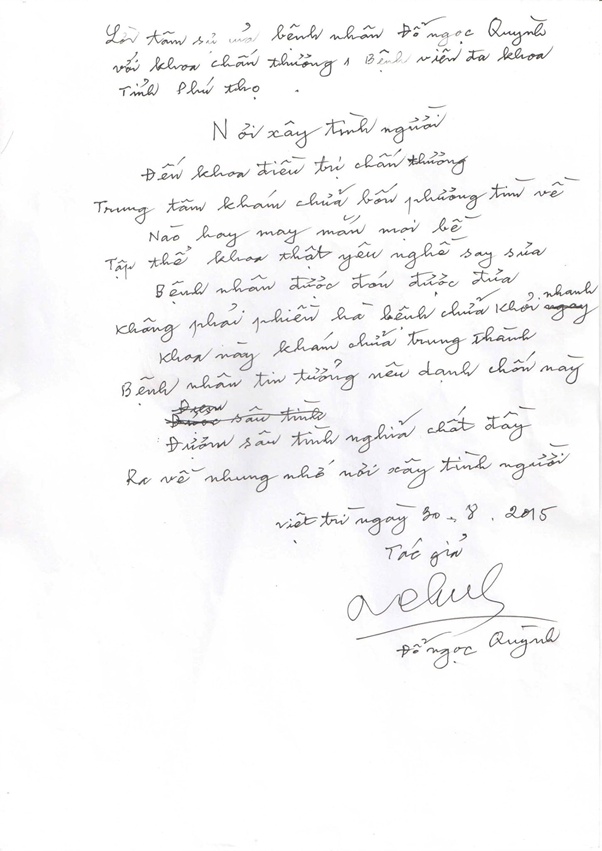 Lời tâm sự của bệnh nhân Đỗ ngọc Quỳnh
với khoa chấn thương, Bệnh viện đa khoa
Tỉnh Phú thọ.
Nơi xây tình người
Đến khoa điều trị chấn thương
Trung tâm khám chữa bốn phương tìm về
Nào hay may mắn mọi bề
Tập thể khoa thật yêu nghề say sưa
Bệnh nhân được đón được đưa
không phải phiền hà bệnh chữa khỏi nhanh
khoa này khám chữa trung thành
Bệnh nhân tin tưởng nêu danh chốn này
Đượm sâu tình nghĩa chất đầy
Ra về nhung nhớ nơi xây tình người
việt trì ngày 30.8.2015
Tác giả
Đỗ ngọc Quỳnh